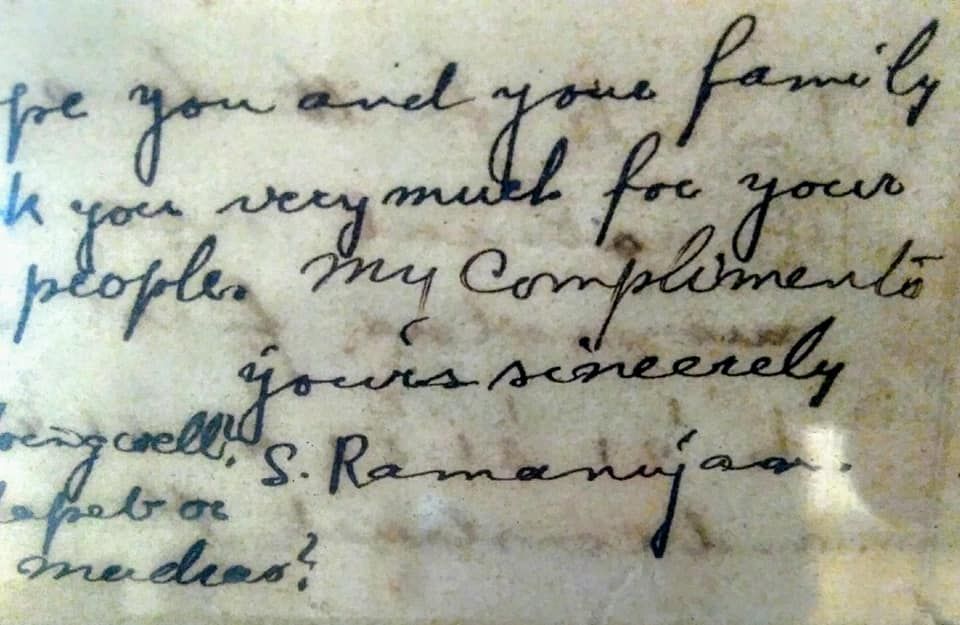 pe you and your family
k you very much for your
people. My Compliments
yours sincerely
being well?
S. Ramanujan.
or
madras?